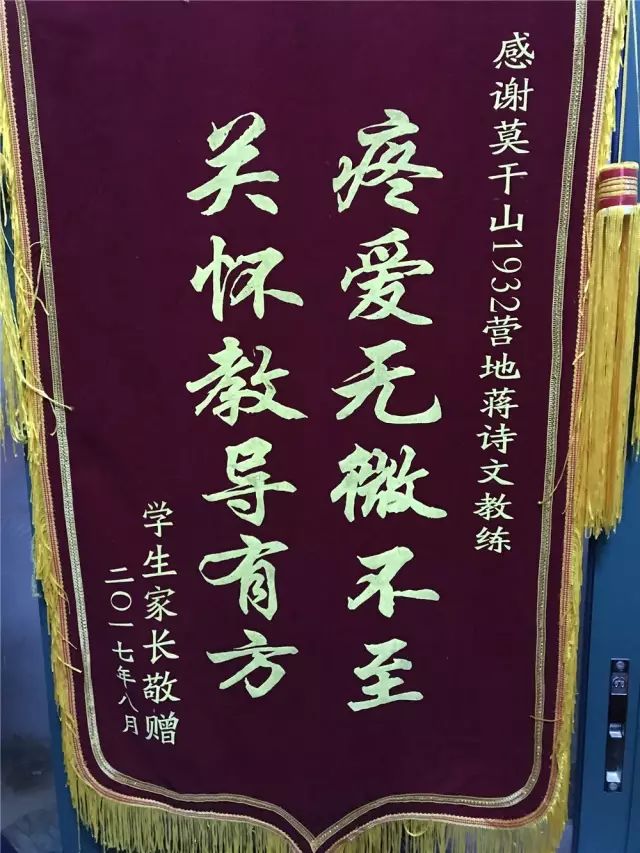 感谢莫干山1932营地蒋诗文教练
疼爱无微不至
关怀教导有方
学生家长敬赠
二〇一七年八月